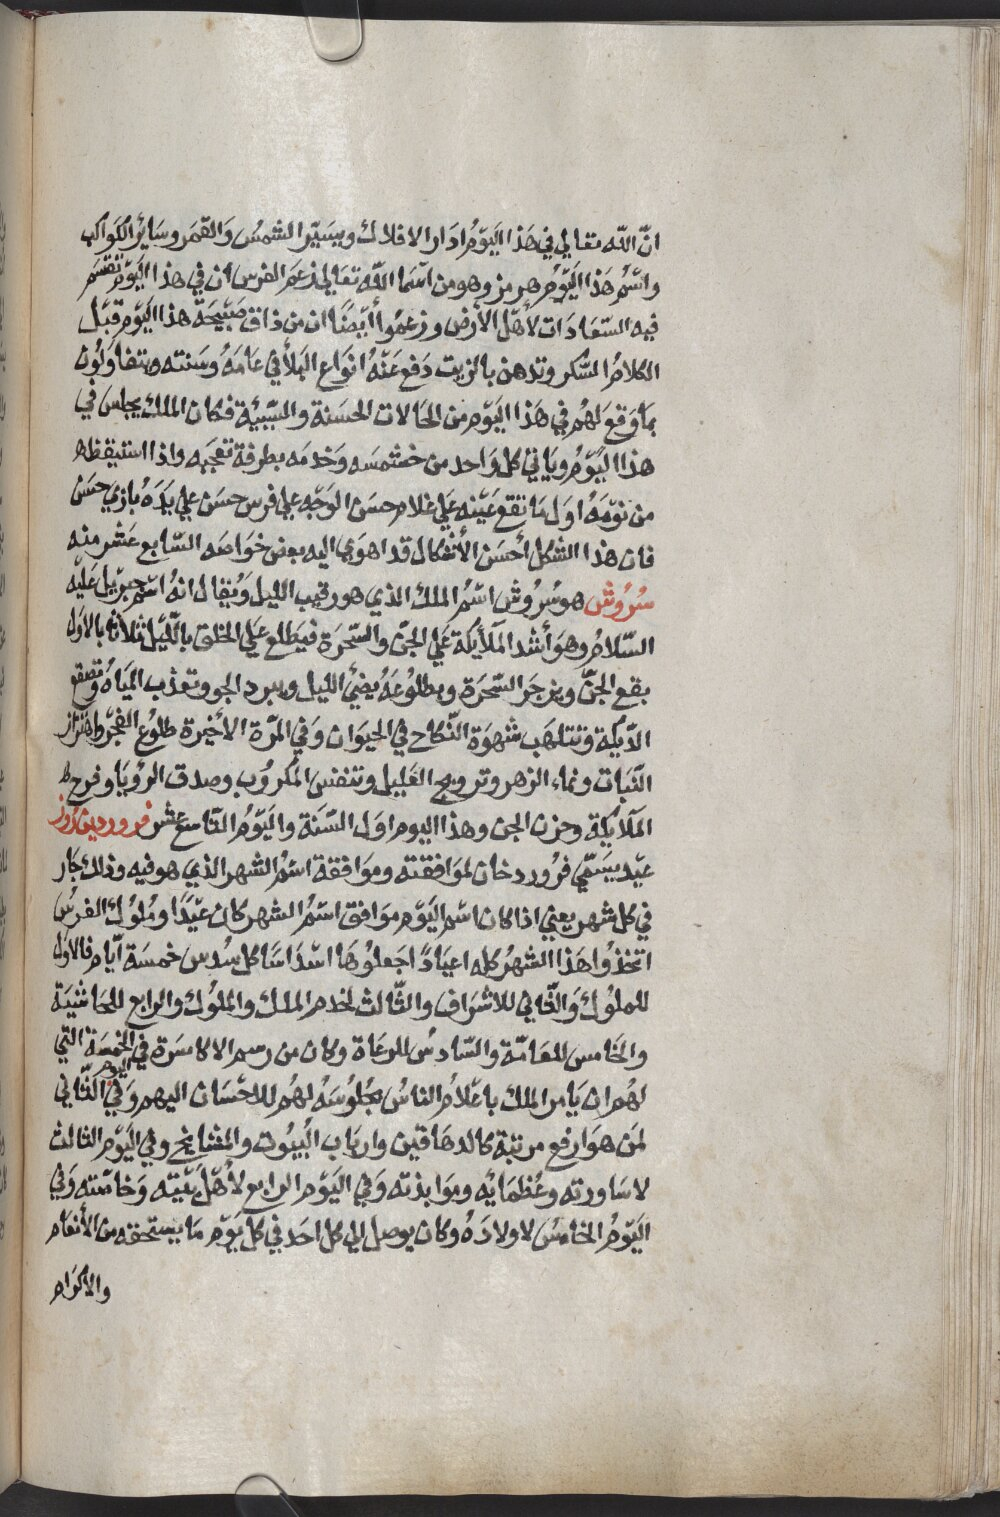 انّ اللّه تعالي في هَذا اليَوْمُ ادَار الافلاك وبيسَيّر الشمسُ وَالقمَر وسَايْر الكَوَاكب
واسْمُ هَذ االيَوْمُ هرمز وهو من اسْمَا اللّه تعَالي زعَمَ الفرس ان في هذ االيَوْم تقسَم
فيه السّعَادَات لاهْل الأرض وزعَمُوا أيضًا ان من ذاق صَبْيحَة هذا اليَوْم قبَل
الكلامُ السُكر وتدهن بالزيت دَفع عَنْهُ انوَاع البَلأ في عَامَهُ وسَنته ويتفاوَلُون
بمَا وَقع لهُم في هَذا اليَوْم من الحَالات الحسَنة والسّيئة فكان الملك يجلس في
هذا اليَوْمُ ويَاتي كل وَاحد من خشمسَه وَخدمَه بطرفة تعجَبه واذا استيقظ
من نوَمَهُ اوَل مَا تقع عَيْنه عَلي غلام حسَن الوَجْه علي فرس حسَن علي يَدَهُ بازي حسَن
فان هذا الشكل أحسَن الأشكال قد اهوَي اليه بعض خوَاصَه السّابع عَشر منه
سُرُوش هو سُرُوش اسْمُ الملك الذي هو رقيب الليل وَيُقال انهُ اسْم جبرْيل عَليْه
السّلامُ وهوَ أشد المَلأيكة عَلي الجنّ والسّحرَة فيَطلع عَلي الخلق بالّليَل ثلاثا بالاوَل
بقع الجنّ ويزجَر السّحَرَة وبطلوُعَهُ يضيُ الليل ويبرد الجو وتعذب المَياهُ وتصقع
الدّيكة وتتلهَب شهوَة النّكاح في الحيوَان وَفي المَرّة الأخيرة طلوُع الفجْر واهتزاز
النّبات ونماء الزهر وترويح العَليل وتنفس المكروُب وصدق الروْيَا وفرح
المَلايكة وحزن الجن وهذا اليوم اوَل السّنَة واليَوْمُ التّاسع عشر فروردين رُوز
عيْد يسَمّي فرُوردخان لموَافقته وموَافقة اسْمُ الشهر الذي هو فيه وذلك جَار
في كل شهر يعني اذا كان اسْم اليَوْم موَافق اسْمُ الشهر كان عيْدًا ومُلوُك الفرسُ
اتخذوُا هَذا الشهرُ كله اعيَادًا جَعلوُهَا اسْدَاسَا كل سُدس خمسَة أيّام فالاوَل
للملوُك وَالثّاني للاشرَاف والثّالث لخدم الملك والملوُك والرابع للحَاشيَة
والخَامس للعَامّة والسّادسُ للرعَاة وكان من رسم الاكاسَرة في الخمسَة التّي
لهُم ان يَامر الملك باعْلامُ الناسُ بجُلوُسَهُ لهُم للاحْسَان اليهم وَفي اليوم الثّاني
لمَن هوَ ارفع مرتبَة كالدهَاقين وارباب البُيوُت والمشايخ وفي اليَوْم الثالث
لاسَاورته وعُظمَايْه وموَابذته وَفي اليَوْم الرابع لأهْل بَيْته وَخاصّته وَفي
اليَوْمُ الخامسُ لاولادَهُ وكان يوصل الي كل احَد في كل يَوْم مَا يستحقه من الأنعَام
والاكرَام